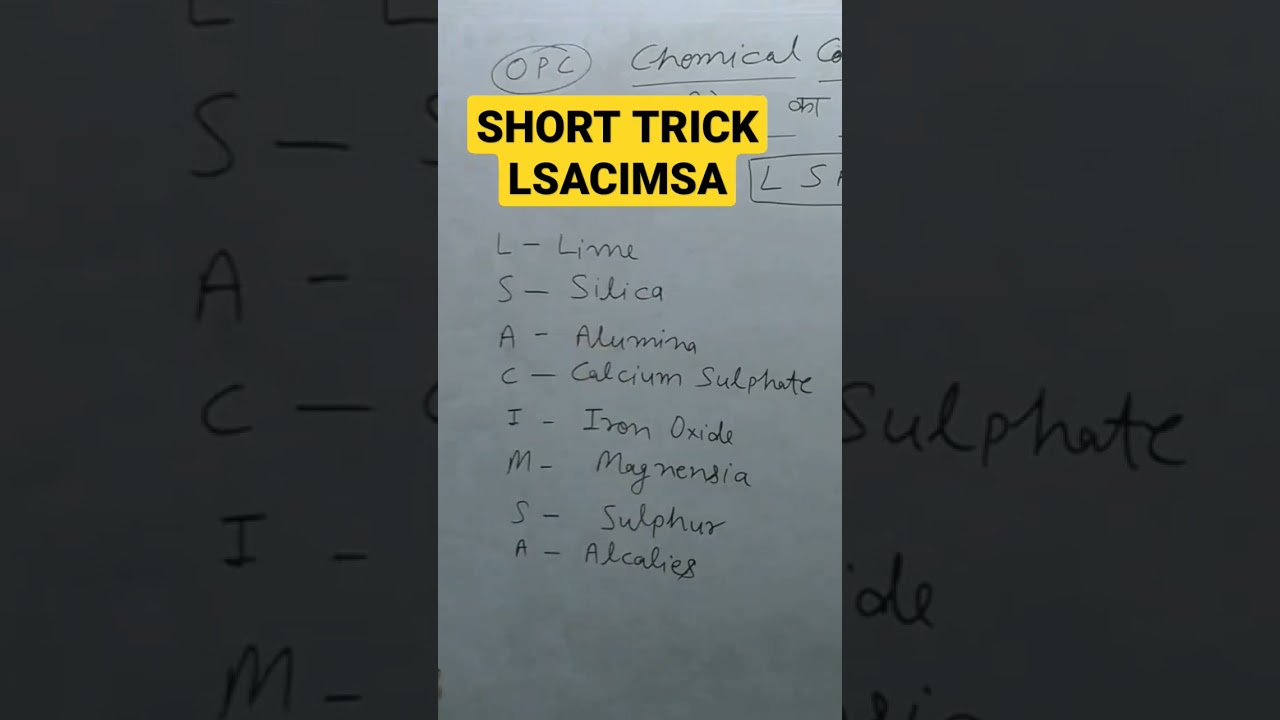 OPC Chemical Co
का
SHORT TRICK
LSACIMSA
L S A
L - Lime
S - Silica
A - Alumina
C - Calcium Sulphate
I - Iron Oxide
M - Magnensia
S - Sulphur
A - Alcalies